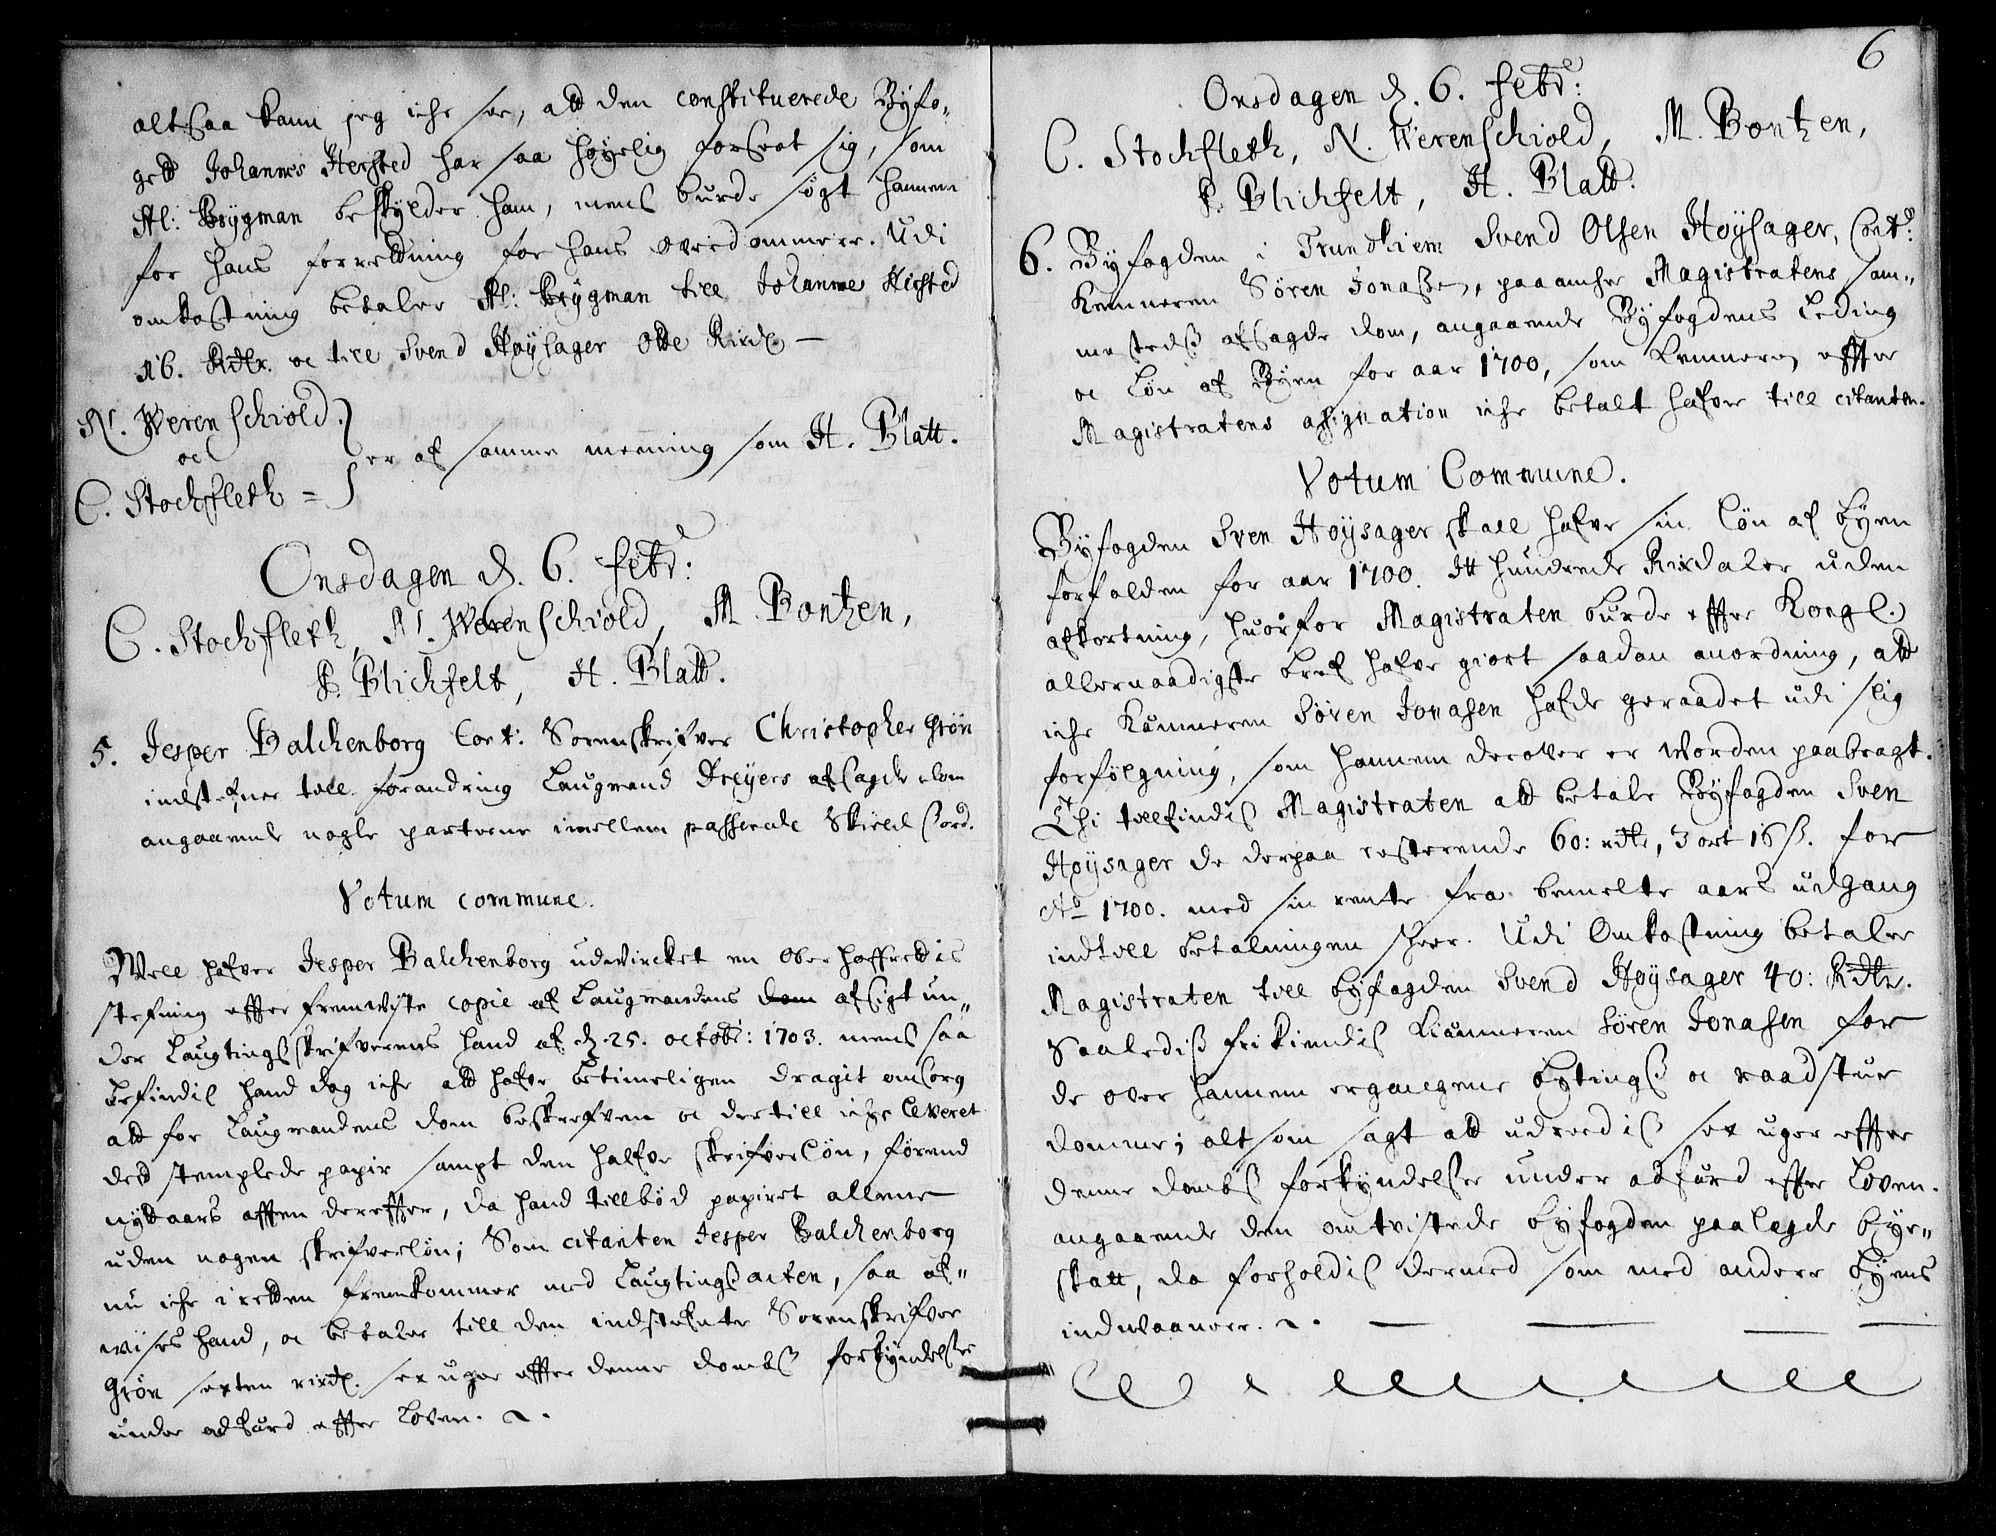 altsaa kand jeg iche see, att den constituerede Byfo„
gett Johannes Hersted har saa høyelig forseet sig, som
Al: Brygman beskylder ham, mens burde søgt hannem
for hans forretning for hans overdommere. Udi
omkostning betaler Al: Brygman till Johanne Hersted
16. Rdlr. oc till Svend Høysager Otte Rixdl. —
N. Werenschiold.
oc
C. Stochfleth =
er af samme meening som H. Blatt.
Onsdagen d. 6. Febr:
C. Stochfleth, N. Werenschiold, M. Bontzen,
P. Blichfelt, H. Blatt.
5. Jesper Balchenborg Cont: Sorenskrifver Christopher Grøn
indstefner till forandring Laugmand Dreyers afsagde dom
angaaende nogle parterne imellem passerede Skields ord.
Votum commune.
Well hafver Jesper Balchenborg udvircket en Ober hoffretts
stefning effter fremviste copie af Laugmandens dom afsigt un„
der Laugtings skrifverens hand af d. 25. octobr: 1703. mens saa
befindis hand dog iche att hafve betimeligen dragit omsorg
att for Laugmandens dom beskrefven oc dertill iche leveret
det stemplede papir sampt den halfve skrifverløn, førend
nyttaars afften dereffter, da hand tillbød papiret allene
uden nogen skrifverløn; Som citanten Jesper Balchenborg
nu iche i retten fremkommer med Laugtings acten, saa af„
vises hand, oc betaler till den indstefnte Sorenskrifver
Grøn sexten rixdl. sex uger effter denne dombs forkyndelse
under adfærd effter Loven.
6
Onsdagen d. 6. Febr:
C. Stochfleth, N. Werenschiold, M. Bontzen,
P. Blichfelt, H. Blatt.
6. Byfogden i Trundhiem Svend Olsen Høysager, Cont:
Kemneren Søren Jonassen, paaancker Magistratens sam„
mestedß afsagde dom, angaaende Byfogdens Leding
oc Løn af Byen for aar 1700, som Kemneren effter
Magistratens assignation iche betalt hafver till citanten.
Votum Commune.
Byfogden Sven Høysager skall hafve sin Løn af byen
forfalden for aar 1700. Et hundrede Rixdaler uden
afkortning, huorfor Magistraten burde effter Kongl.
allernaadigste bref hafve giort saadan anordning, att
iche Kämneren Søren Jonasen hafde geraadet udi slig
forfølgning, som hannem derover er worden paabragt.
Thi tillfindis Magistraten att betale Byfogden Sven
Høysager de derpaa resterende 60: rdlr, 3 ort 16 ß. for
Ao 1700. med sin rente fra bemelte aars udgang
indtill betalningen skeer. Udi Omkostning betaler
Magistraten till byfogden Svend Høysager 40: Rdlr.
Saaledis frikiendis Kiämneren Søren Jonasen for
de over hannem ergangene bytings oc raadstue
domme; alt som sagt att udredis sex uger effter
denne dombs forkyndelse under adfærd effter Loven.
angaaende den omtvistede byfogden paalagde bye„
skatt, da forholdis dermed som med andere byens
indvaanere.